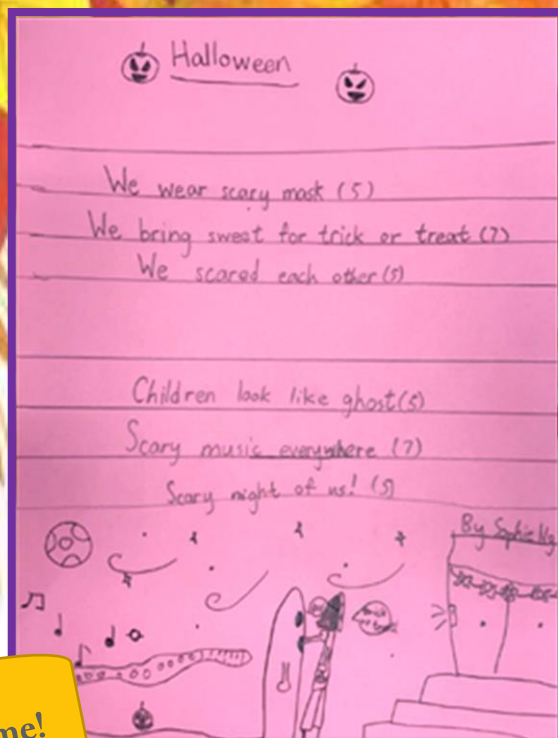 Halloween
We wear scary mask (5)
We bring sweet for trick or treat (7)
We scared each other (5)
Children look like ghost (5)
Scary music everywhere (7)
Scary night of us! (5)
By Sophie Ng
me!